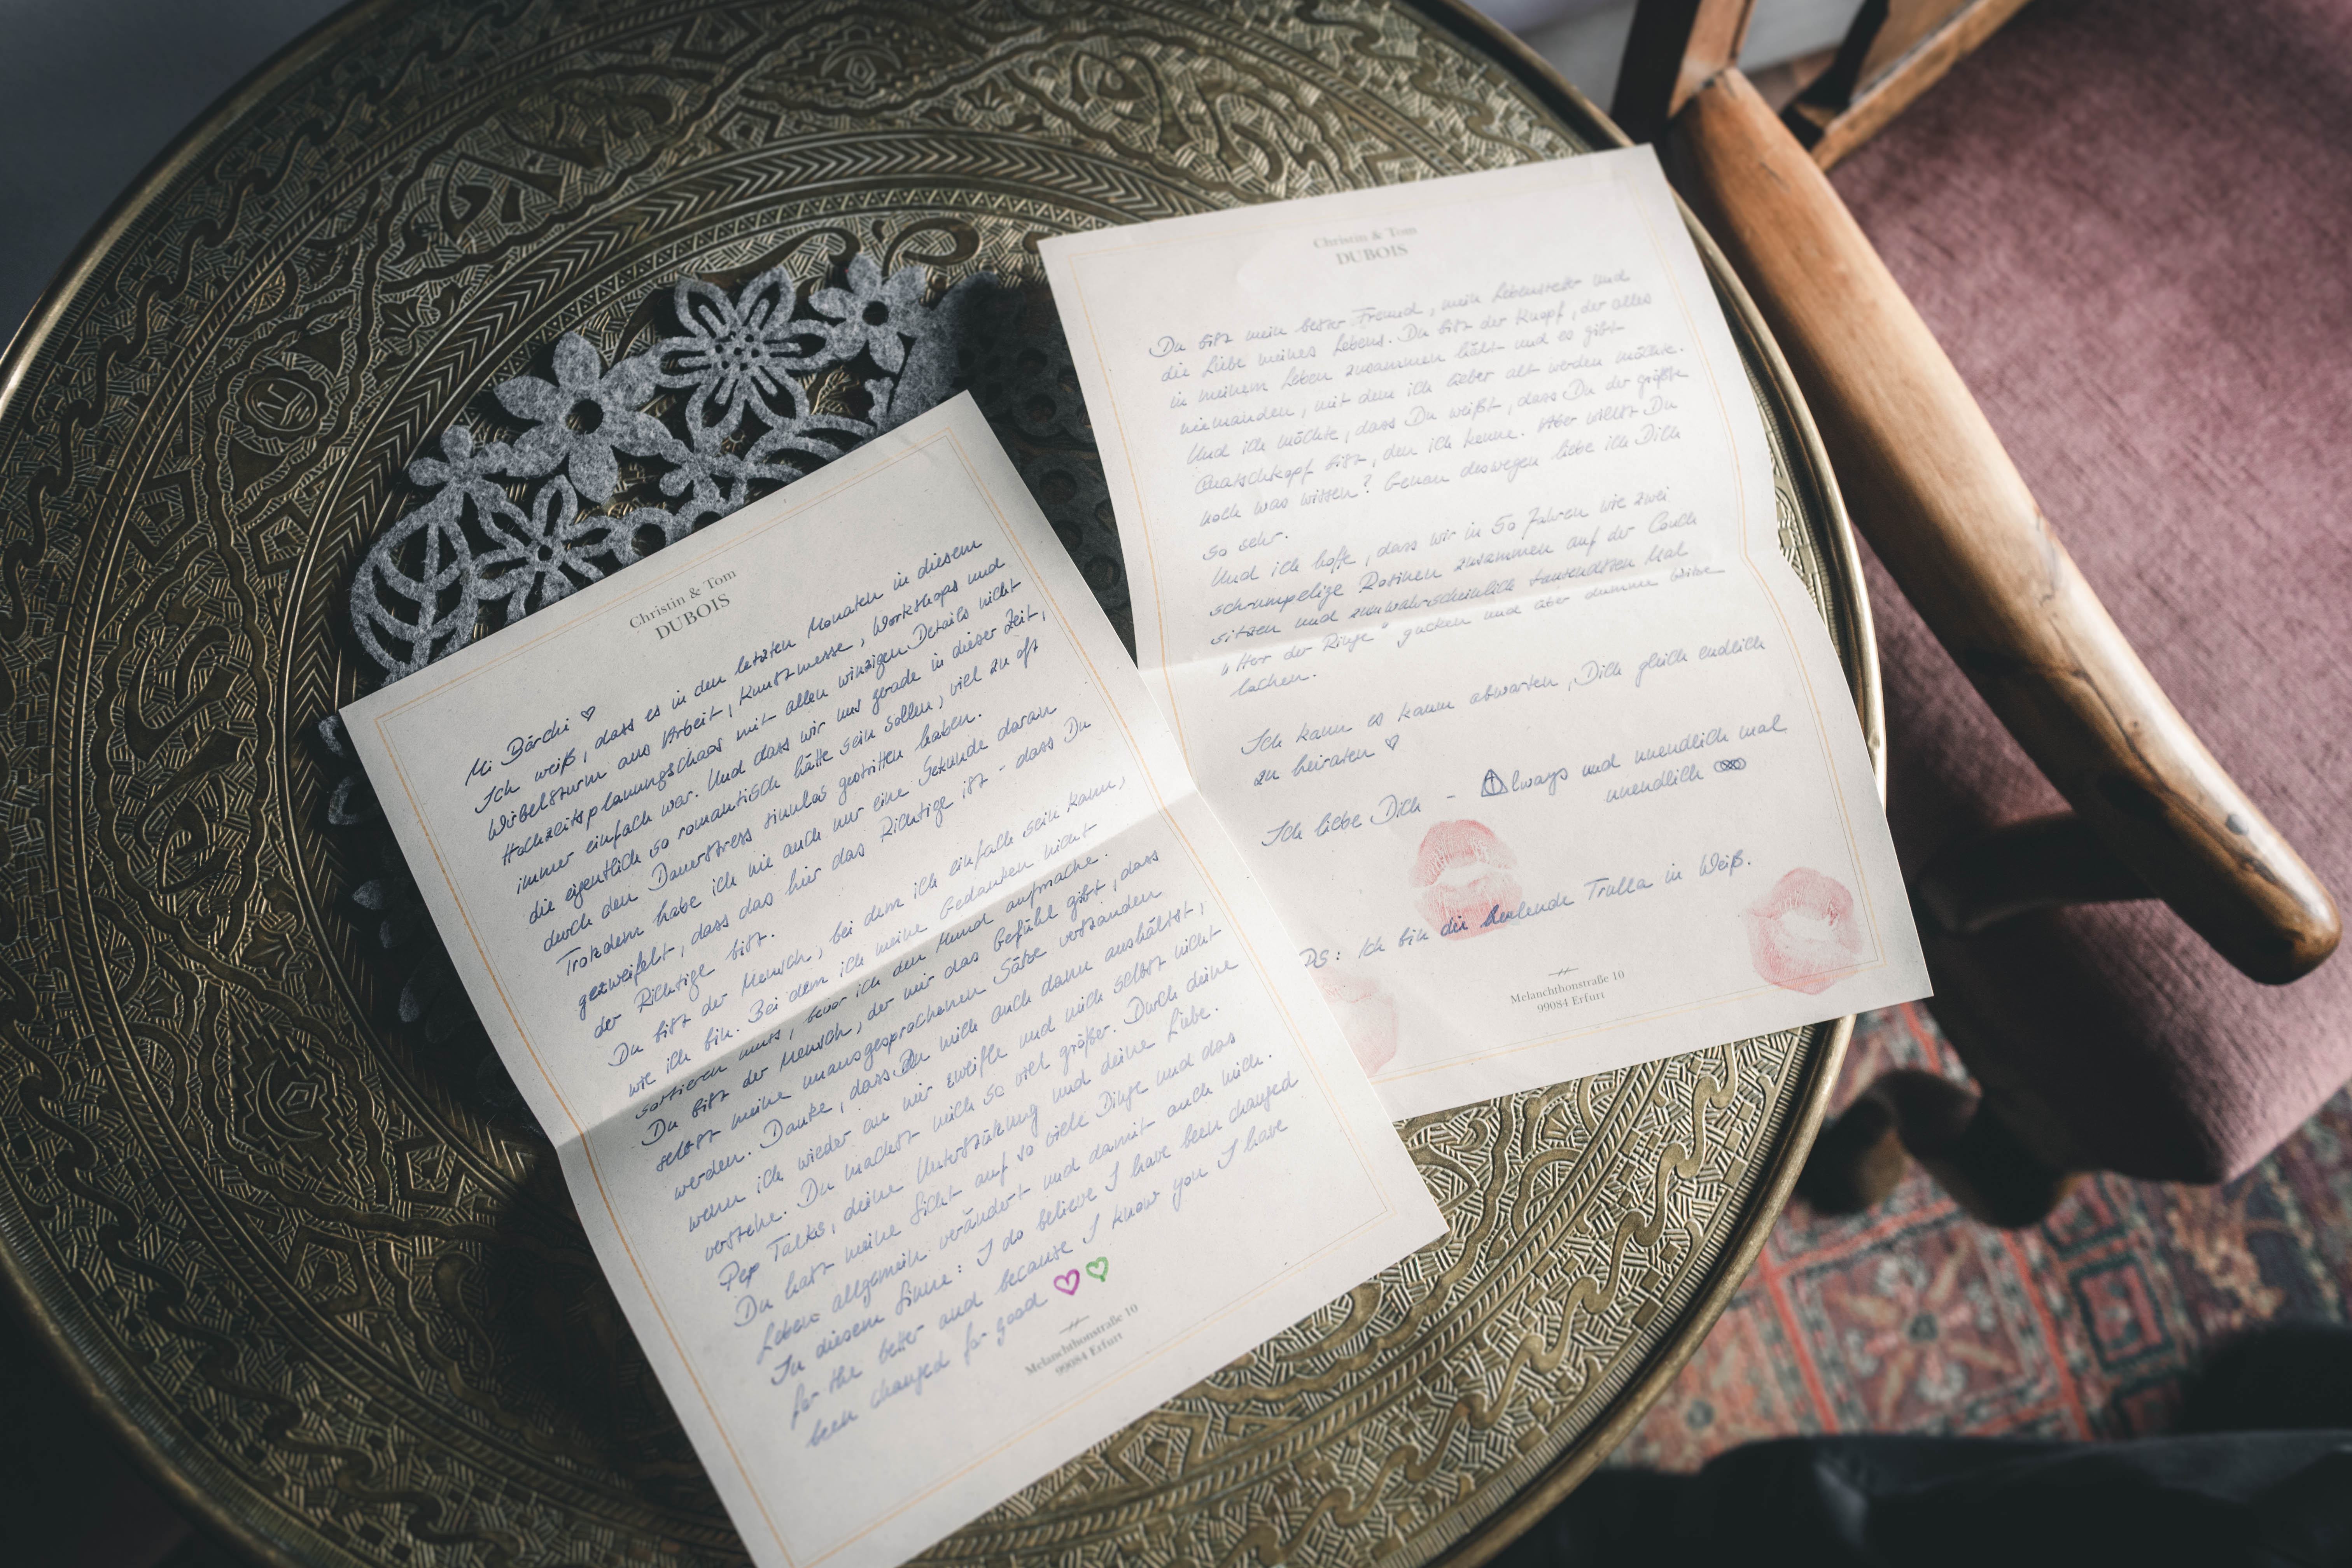 Christin & Tom
DUBOIS
Mi Bärchi ♡
Ich weiß, dass es in den letzten Monaten in diesem
Wirbelsturm aus Arbeit, Kunstmesse, Workshops und
Hochzeitsplanungschaos mit allen winzigen Details nicht
immer einfach war. Und dass wir uns gerade in dieser Zeit,
die eigentlich so romantisch hätte sein sollen, viel zu oft
durch den Dauerstress sinnlos gestritten haben.
Trotzdem habe ich nie auch nur eine Sekunde daran
gezweifelt, dass das hier das Richtige ist - dass Du
der Richtige bist.
Du bist der Mensch, bei dem ich einfach sein kann,
wie ich bin. Bei dem ich meine Gedanken nicht
sortieren muss, bevor ich den Mund aufmache.
Du bist der Mensch, der mir das Gefühl gibt, dass
selbst meine unausgesprochenen Sätze verstanden
werden. Danke, dass Du mich auch dann aushältst,
wenn ich wieder an mir zweifle und mich selbst nicht
verstehe. Du machst mich so viel größer. Durch deine
Pep Talks, deine Unterstützung und deine Liebe.
Du hast meine Sicht auf so viele Dinge und das
Leben allgemein verändert und damit auch mich.
In diesem Sinne: I do believe I have been changed
for the better and because I know you I have
been changed for good ♡♡
Melanchthonstraße 10
99084 Erfurt
Christin & Tom
DUBOIS
Du bist mein bester Freund, mein Lebensretter und
die Liebe meines Lebens. Du bist der Knopf, der alles
in meinem Leben zusammen hält und es gibt
niemanden, mit dem ich lieber alt werden möchte.
Und ich möchte, dass Du weißt, dass Du der größte
Quatschkopf bist, den ich kenne. Aber willst Du
noch was wissen? Genau deswegen liebe ich Dich
so sehr.
Und ich hoffe, dass wir in 50 Jahren wie zwei
schrumpelige Rosinen zusammen auf der Couch
sitzen und zum wahrscheinlich tausendsten Mal
„Herr der Ringe" gucken und über dumme Witze
lachen.
Ich kann es kaum abwarten, Dich gleich endlich
zu heiraten ♡
Ich liebe Dich - Always und unendlich mal
unendlich
PS: Ich bin die heulende Trulla in Weiß.
Melanchthonstraße 10
99084 Erfurt